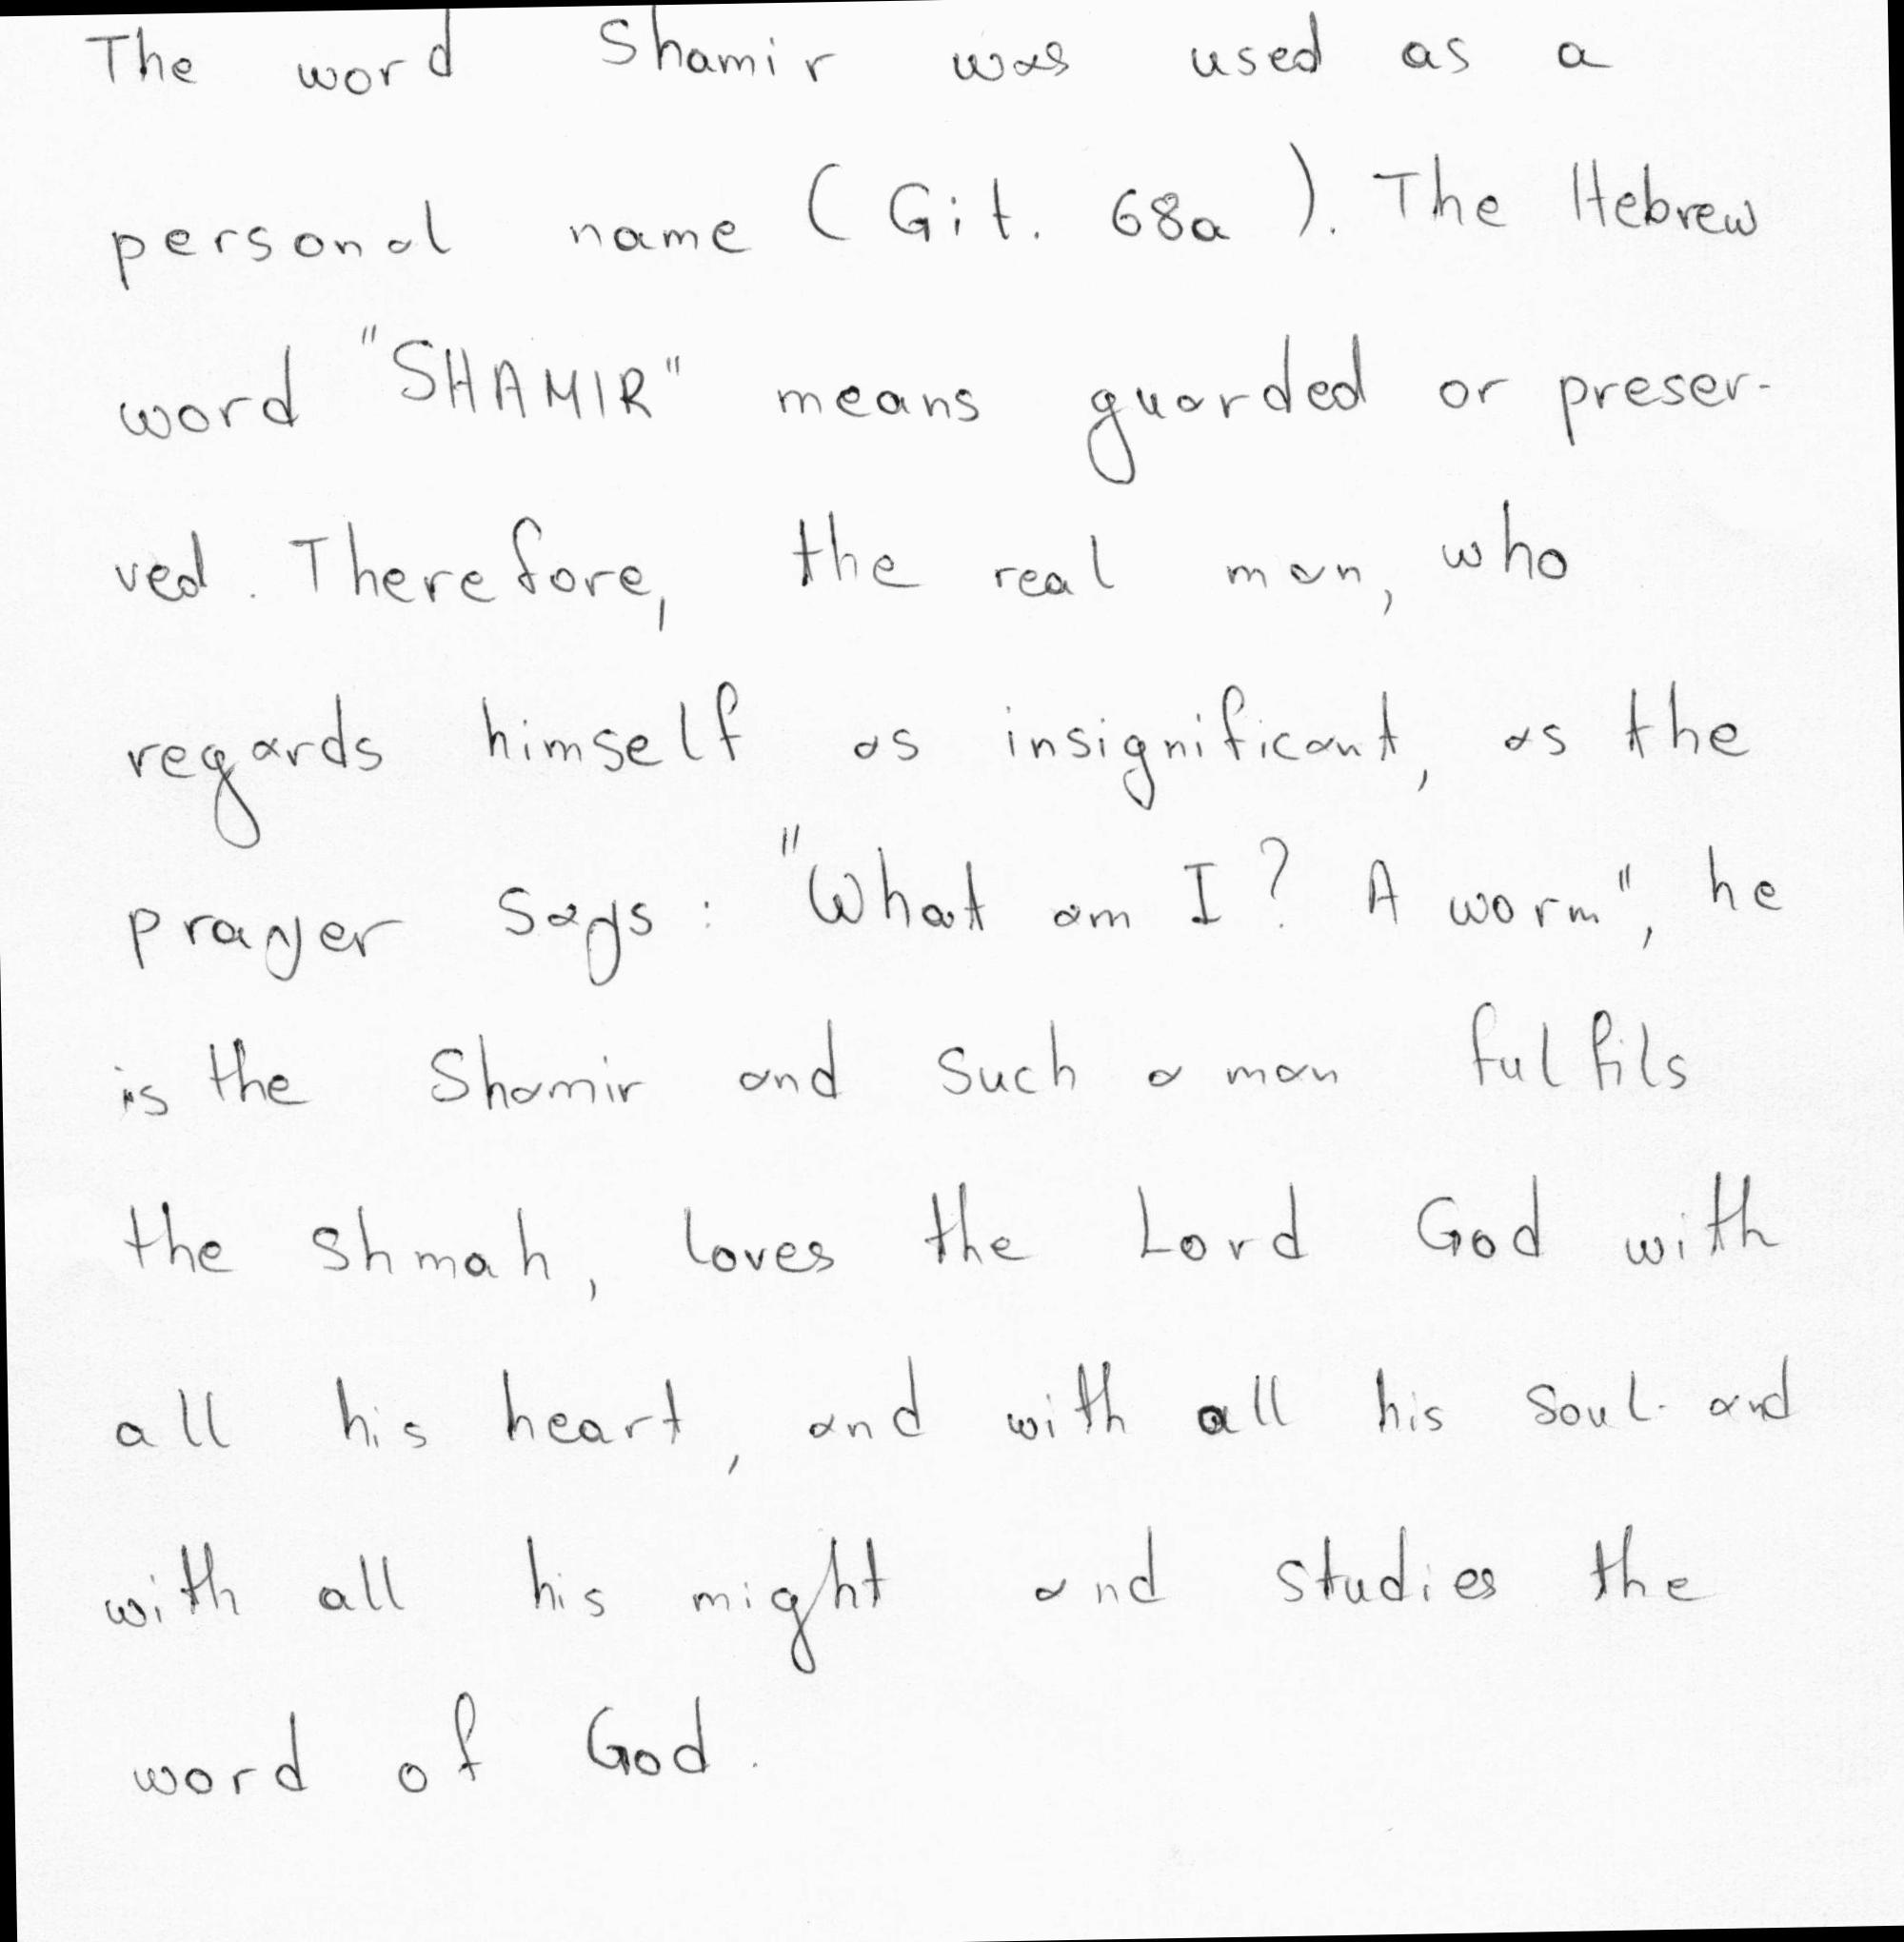 The word Shamir was used as a
personal name (Git. 68a). The Hebrew
word "SHAMIR" means guarded or preser-
ved. Therefore, the real man, who
regards himself as insignificant, as the
prayer says: "What am I? A worm", he
is the Shamir and such a man fulfils
the Shmah, loves the Lord God with
all his heart, and with all his soul and
with all his might and studies the
word of God.